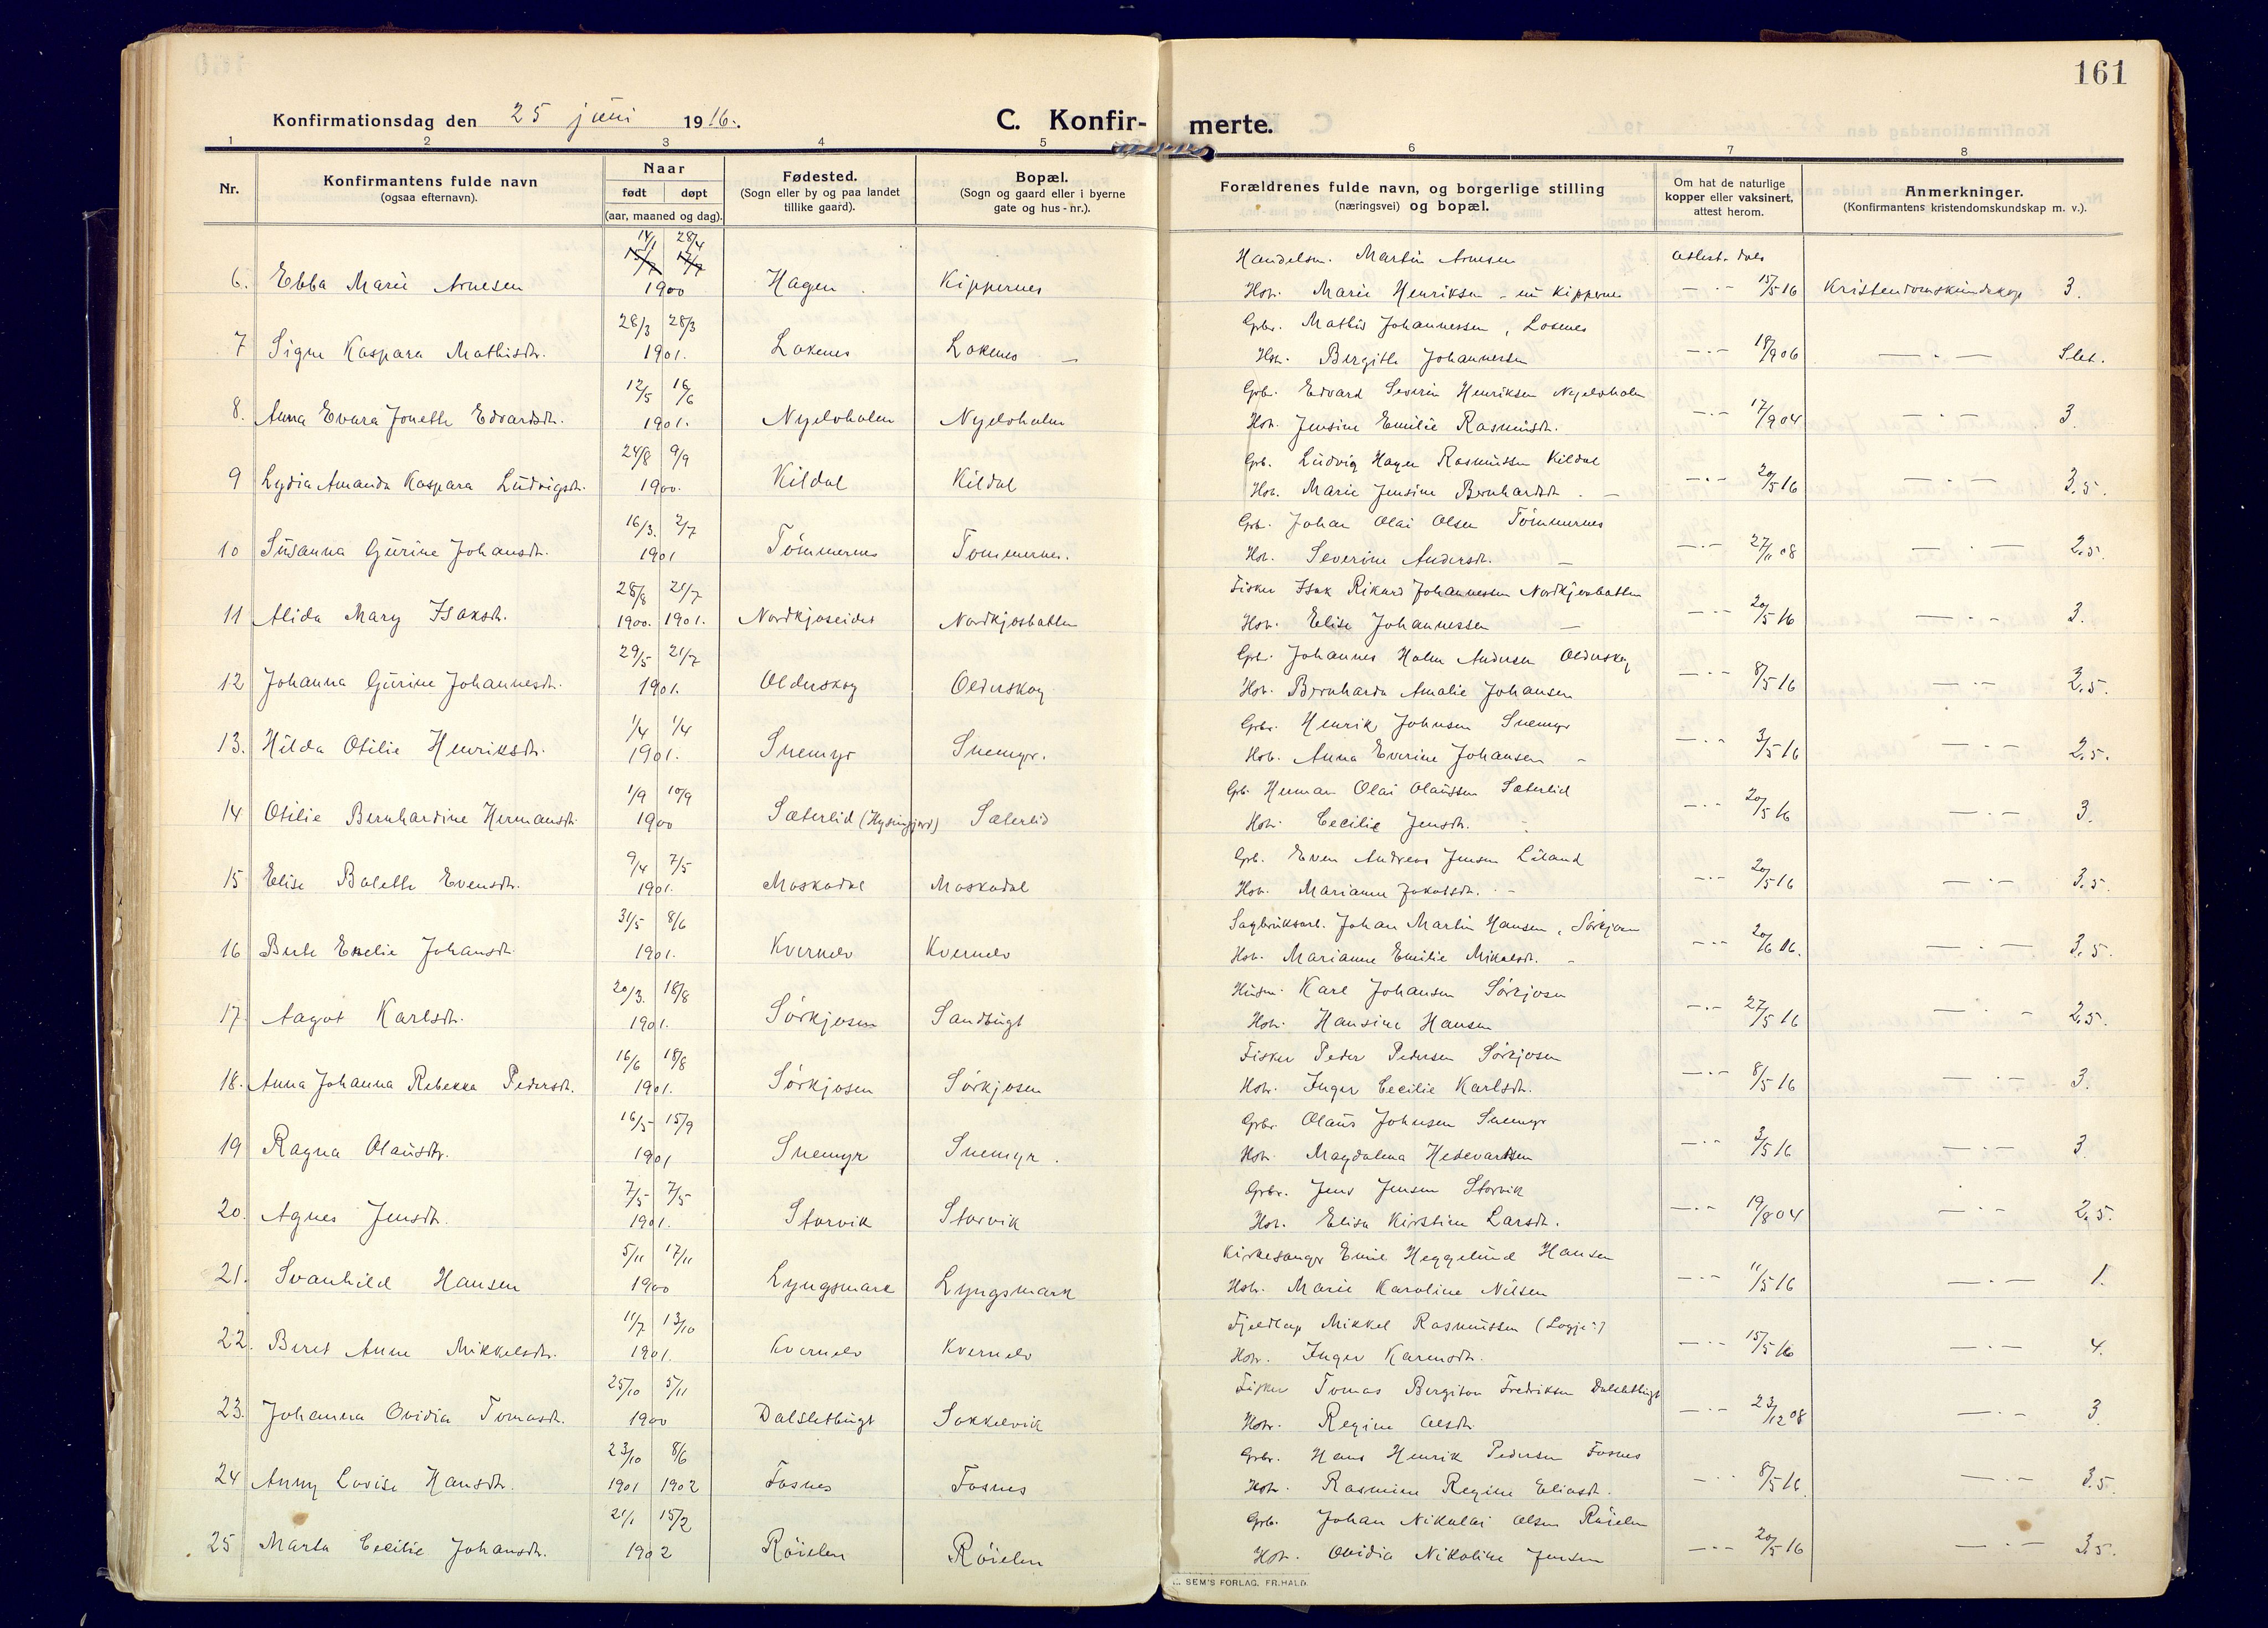 161
Konfirmationsdag den 25 juni 1916.
C. Konfir- merte.
1 2 3 4 5 6 7 8
Nr.
Konfirmantens fulde navn
(ogsaa efternavn).
Naar
født døpt
(aar, maaned og dag).
Fødested.
(Sogn eller by og paa landet
tillike gaard).
Bopæl.
(Sogn og gaard eller i byerne
gate og hus-nr.).
Forældrenes fulde navn, og borgerlige stilling
(næringsvei) og bopæl.
Om hat de naturlige
kopper eller vaksinert,
attest herom.
Anmerkninger.
(Konfirmantens kristendomskundskap m. v.).
14/1 28/4 Handelsm. Martin Arnesen
6. Ebba Marie Arnesen 1900 Hagen Kippernes Hstr. Marie Henriksen Kippernes — 15/5 16 Kristendomskundskap 3.
28/3 28/3 Gbr. Mathis Johannessen,
7 Signe Kaspara Mathisdtr. 1901. Lokenes Lokenes Hstr. Birgitte Johannessen —.— 19/9 06 —.— Slet.
12/5 16/6 Grb. Edvard Severin Henriksen Nyelvholm
8. Anna Evara Jonette Edvardsdtr. 1901. Nyelvholm Nyelvholm Hstr. Jensine Emilie Rasmusdtr. —.— 17/9 04 —.— 3.
24/8 9/9 Grb. Ludvig Hagen Rasmussen Kildal
9 Lydia Amanda Kaspara Ludvigsdtr. 1900. Kildal Kildal Hstr. Marie Jensine Bernhardsdtr. — —.— 20/5 16 —.— 3.5.
16/3. 2/7 Grb. Johan Olai Olsen Tömmernes
10 Susanna Gurine Johansdtr. 1901 Tömmernes Tömmernes. Hstr. Severine Andersdtr. — —.— 27/11 08 —.— 2.5.
28/8 21/7 Fisker Isak Rikard Johannessen Nordkjosbotten
11 Alida Mary Isaksdtr. 1900. 1901. Nordkjoseidet Nordkjosbotten Hstr. Elise Johannessen — —.— 20/5 16 —.— 3.
29/5 21/7 Gbr. Johannes Holm Andersen Olderskog
12 Johanna Gurine Johannesdtr. 1901. Olderskog Olderskog Hstr. Bernharda Amalie Johansen —.— 8/5 16 —.— 2.5.
1/4 1/4 Grbr. Henrik Johnsen Snemyr
13. Hilda Otilie Henriksdtr. 1901. Snemyr Snemyr. Hstr. Anna Everine Johansen — —.— 3/5 16 —.— 2.5.
1/9 10/9 Grb. Herman Olai Olaussen Sæterlid
14 Otilie Bernhardine Hermansdtr. 1900 Sæterlid Sæterlid Hstr. Cecilie Jensdtr. —.— 20/5 16 —.— 3.
9/4 7/5 Grb. Even Andreas Jensen
15 Elise Bolette Evensdtr. 1901. Maskodal Maskodal Hstr. Marianne Jakobsdtr. — —.— 20/5 16 —.— 3.5.
31/5 8/6 Sagbruksarb. Johan Martin Hansen, Sörkjosen
16 Emelie Johansdtr. 1901. Kvernelv Kvernelv Hstr. Marianne Emilie Mikalsdtr. — —.— 20/6 06. —.— 3.5.
20/3. 18/8 Husm. Karl Johansen Sörkjosen
17 Aagot Karlsdtr. 1901. Sörkjosen Sandbugt Hstr. Hansine Hansen —.— 27/5 16 —.— 2.5.
16/6 18/8 Fisker Peder Pedersen Sörkjosen
18. Anna Johanna Rebekka Pedersdtr. 1901. Sörkjosen Sörkjosen Hstr. Inger Cecilie Karlsdtr. —.— 8/5 16 —.— 3.
16/5 15/9 Grbr. Olaus Johnsen Snemyr
19 Ragna Olausdtr. 1901 Snemyr Snemyr. Hstr. Magdalena —.— 3/5 16 —.— 3.
7/5 7/5 Grbr. Jens Jensen Storvik
20. Agnes Jensdtr. 1901. Storvik Storvik Hstr. Elisa Kirstine Larsdtr. —.— 19/8 04 —.— 2.5.
5/11 17/11 Kirkesanger Emil Heggelund Hansen
21. Svanhild Hansen 1900 Lyngsmark Lyngsmark Hstr. Marie Karoline Nilsen —.— 11/5 16 —.— 1.
11/7 13/10 Fjeldlap Mikkel Rasmussen
22. Beret Anne Mikkelsdtr. 1901. Kvernelv Kvernelv Hstr. Inger —.— 15/5 16 —.— 4.
25/10 5/11 Fisker Tomas Bergiton Fredriksen Dalsletbugt
23. Johanna Ovidia Tomasdtr. 1900 Dalsletbugt Sakkelvik Hstr. Regine Olsdtr. —.— 23/12 08 —.— 3
23/10 8/6 Grbr. Hans Henrik Pedersen Fosnes
24 Anny Lovise Hansdtr. 1901 1902 Fosnes Fosnes Hstr. Rasmine Regine Eliasdtr. — 8/5 16. —.— 3.5.
21/1 15/2 Grb. Johan Nikolai Olsen Röielen
25 Marta Cecilie Johansdtr. 1902 Röielen Röielen Hstr. Ovidia Nikoline Jensen —.— 20/5 16 —.— 3.5.
SEM'S FORLAG. FR.HALD.